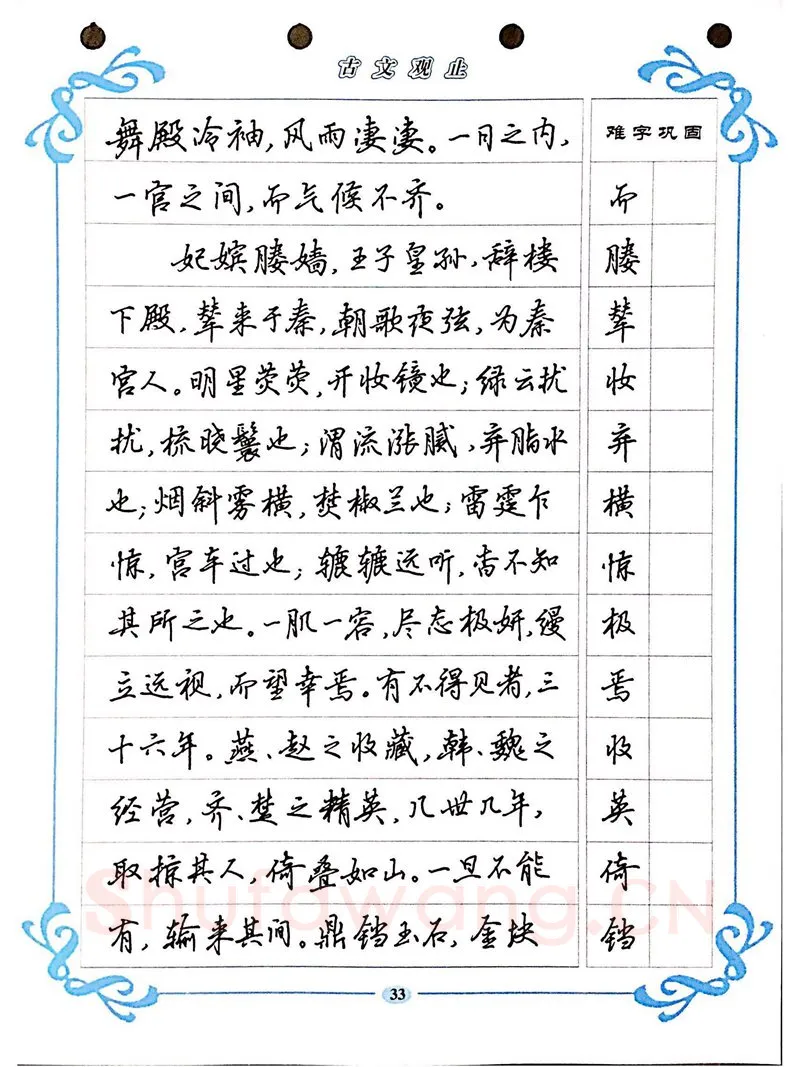 古文观止
舞殿冷袖，风雨凄凄。一日之内，
一宫之间，而气候不齐。
妃嫔媵嫱，王子皇孙，辞楼
下殿，辇来于秦，朝歌夜弦，为秦
宫人。明星荧荧，开妆镜也；绿云扰
扰，梳晓鬟也；渭流涨腻，弃脂水
也；烟斜雾横，焚椒兰也；雷霆乍
惊，宫车过也；辘辘远听，杳不知
其所之也。一肌一容，尽态极妍，缦
立远视，而望幸焉。有不得见者，三
十六年。燕、赵之收藏，韩、魏之
经营，齐、楚之精英，几世几年，
取掠其人，倚叠如山。一旦不能
有，输来其间。鼎铛玉石，金块
难字巩固
而
媵
辇
妆
弃
横
惊
极
焉
收
英
倚
铛
Shufawang.CN
33